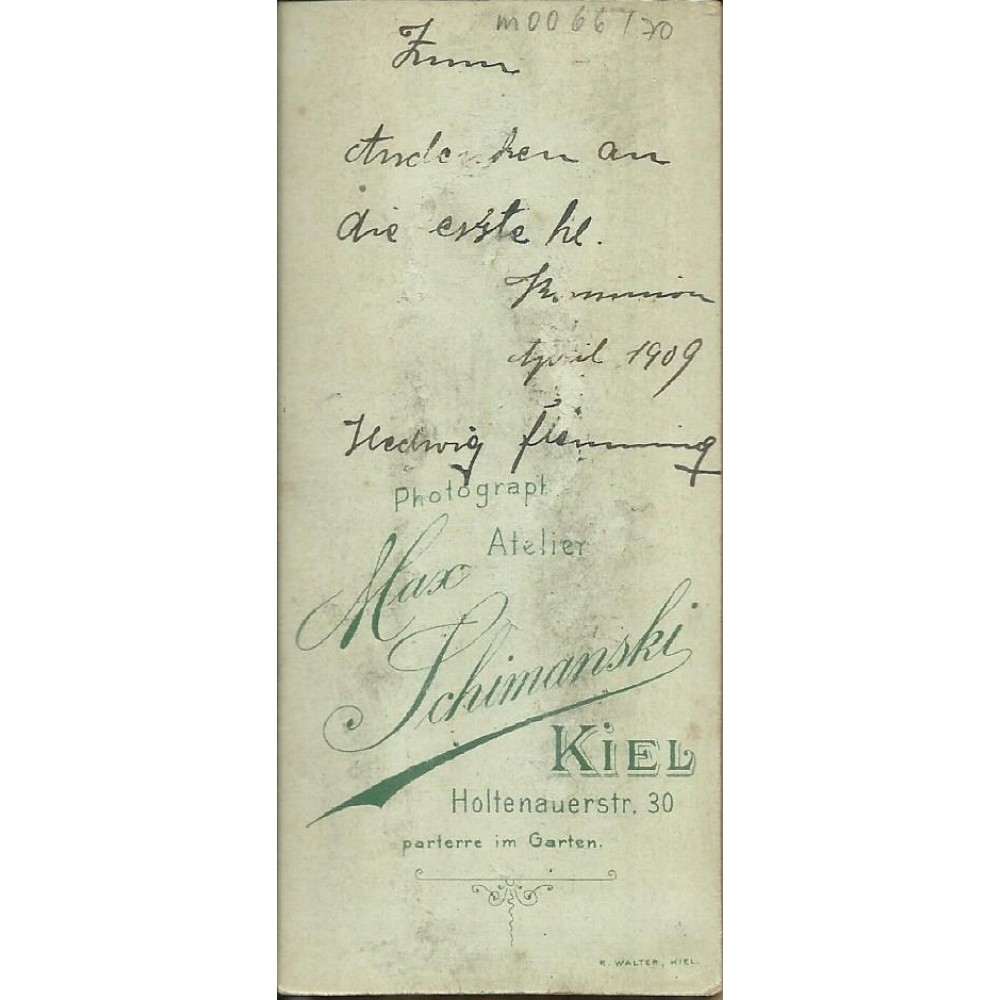 m0066/70
Zum
Andenken an
die erste hl.
Kommunion
April 1909
Hedwig Flemming
Photograph.
Atelier
Max
Schimanski
KIEL
Holtenauerstr. 30
parterre im Garten.
K. WALTER, KIEL.